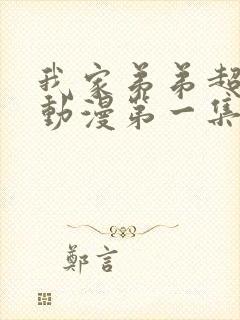 我家弟弟超
動漫第一集
鄭言